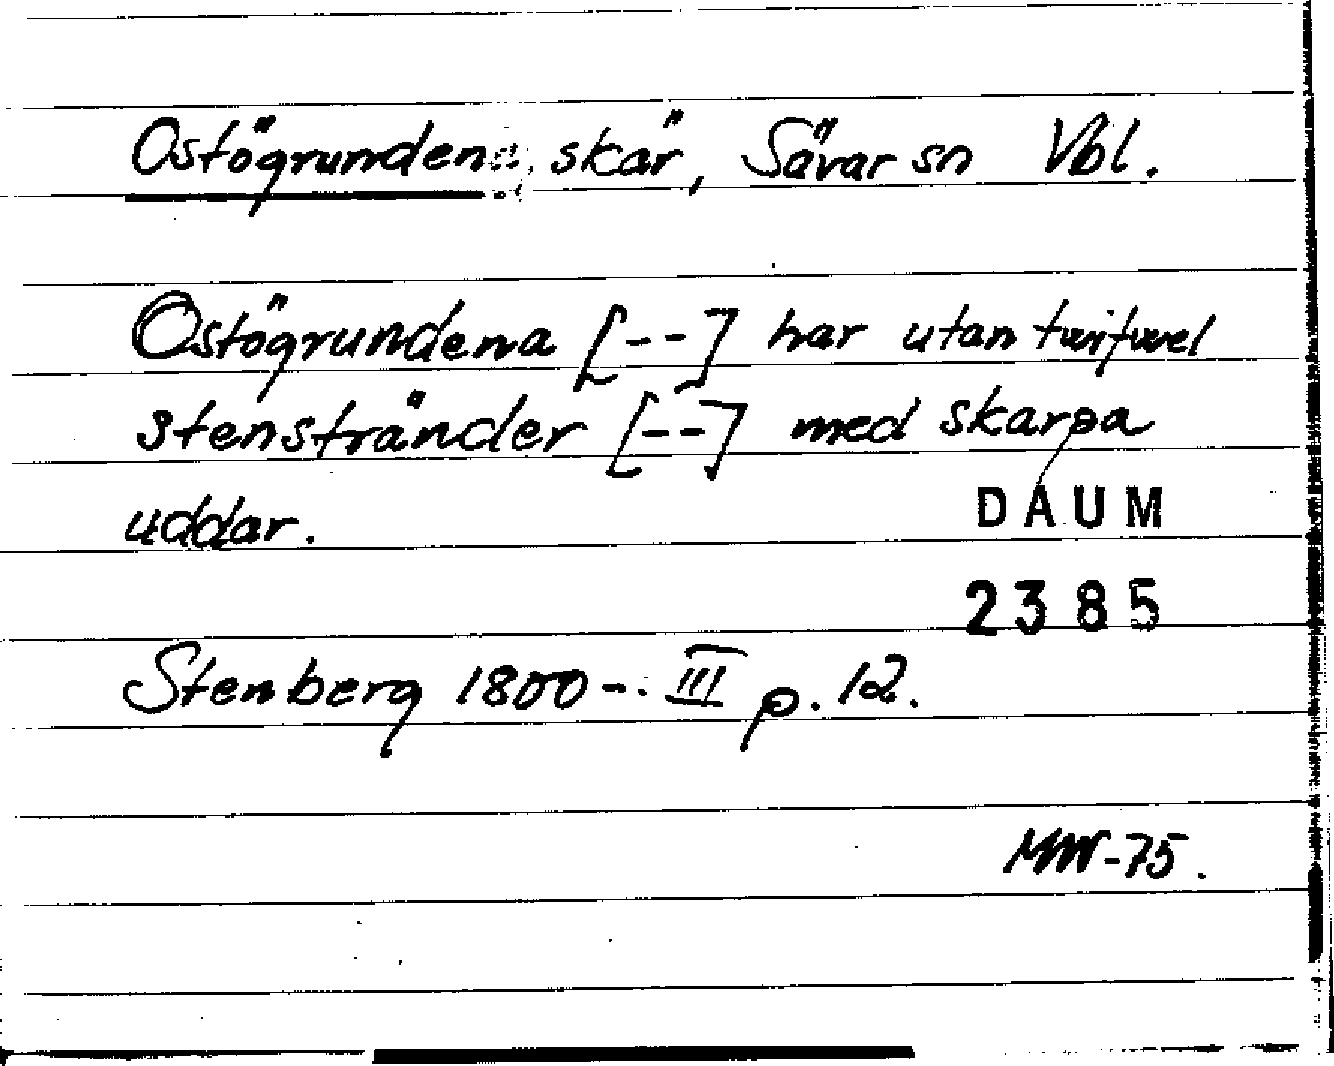 Ostögrunden, skär, Sävar sn Vbl.
Ostögrundena [--] har utan twifwel
stenstränder [--] med skarpa
uddar.
DAUM
2385
Stenberg 1800-. III p. 12.
MW-75.